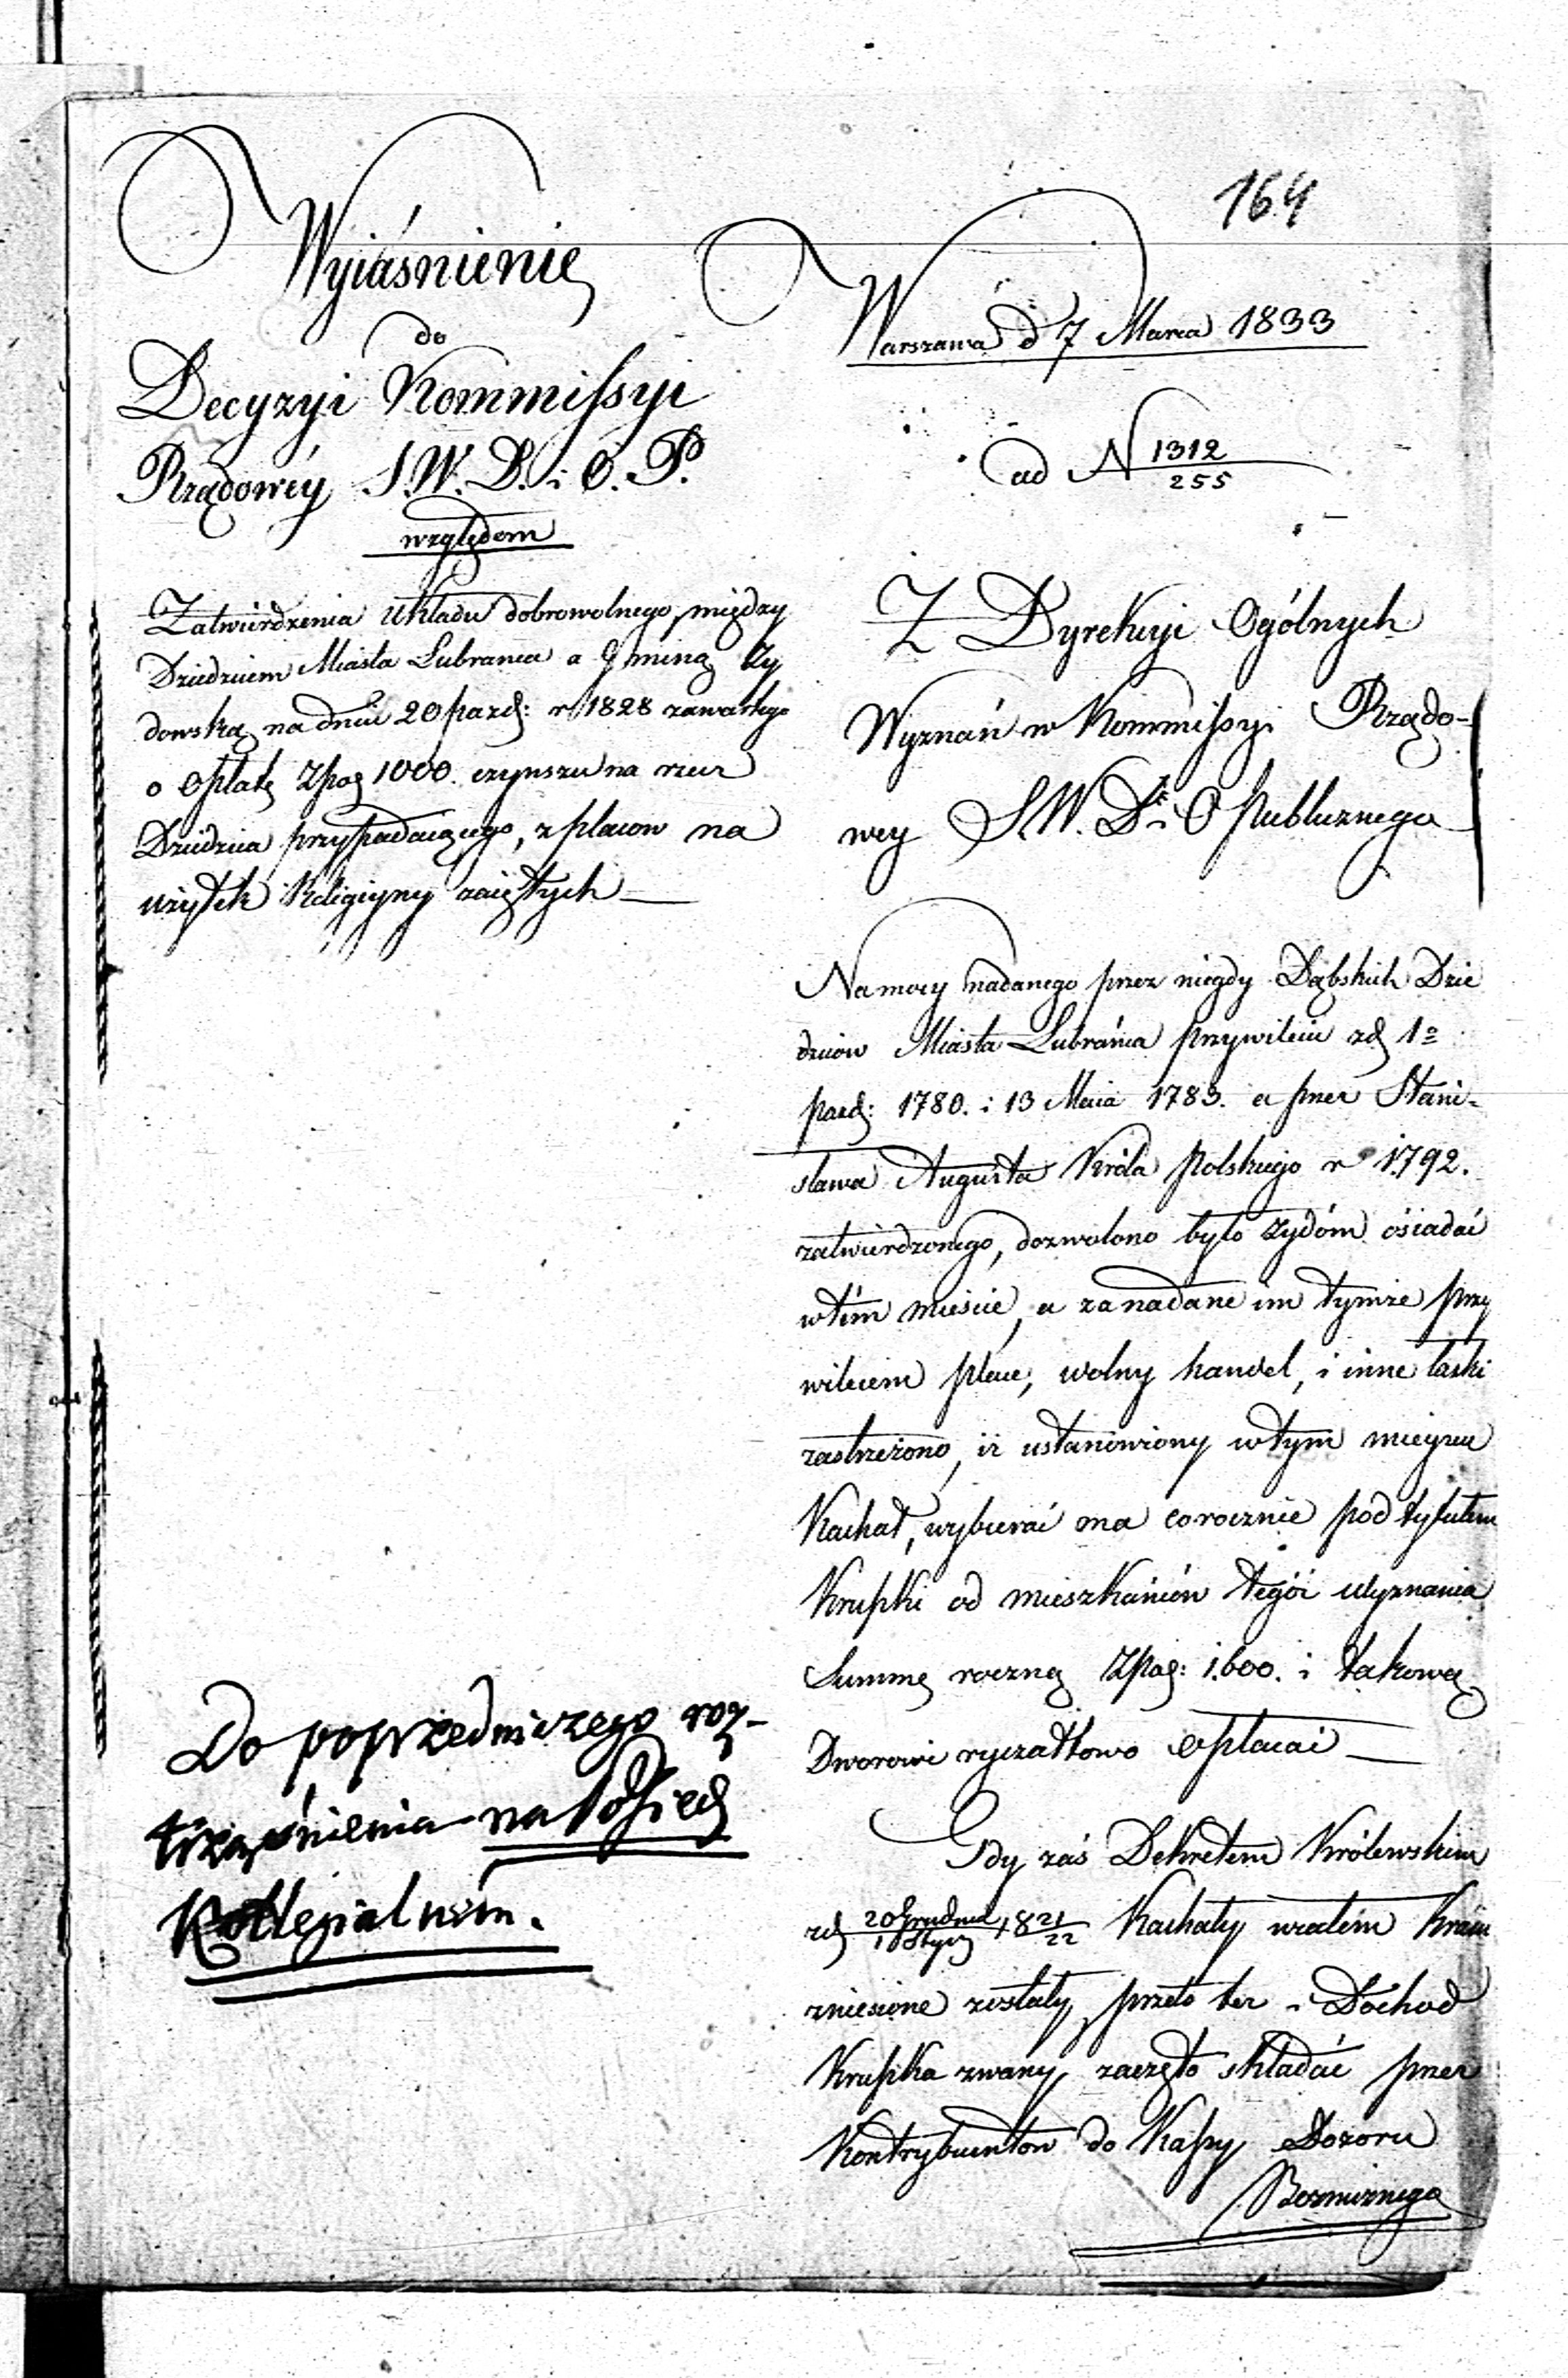 164
Wyiáśnienie
do
Decyzyi Kommissyi
Rządowéy S.W.D. i O.P.
względem
Zatwierdzenia Układu dobrowolnego, między
Dziedzicem Miasta Lubrania a Gminą Ży
dowską na dniu 20 pazd: r 1828 zawartego
o Opłatę Zpag 1000. czynszu na rzecz
Dziedzica przypadaiącego, z placow na
użytek Religiyny zaiętych —
Do poprzedniczego roz-
trząśnienia na Posied
Kollegialném.
Warszawa d 7 Marca 1833
ad N 1312/255
Z Dyrekcyi Ogólnych
Wyznań w Kommissyi Rządo-
wey S.W.D. i O Publicznego
Na mocy nadanego przez niegdy Dąbskich Dzie
dziców Miasta Lubrańca przywileiu zd 1o
pazd: 1780. i 13 Maia 1783. a przez Stani-
sława Augusta Króla Polskiego r 1792.
zatwierdzonego, dozwolono było żydóm ośiadać
w tém mieście, a za nadane im tymże przy
wileiem place, wolny handel, i inne łaski
zastrzeżono, iż ustanowiony w tym mieyscu
Kachał, wybierać ma corocznie pod tytułem
Krupki od mieszkańców tegóż Wyznania
Summę roczną Zpag: 1.600. i takową
Dworowi ryczałtowo opłacać —
Gdy zaś Dekretem Królewskim
zd 20 Grudnia/1 Stycz 1821/22 Kachały w całém Kraiu
zniesione zostały, przeto też i Dochod
Krupka zwany, zaczęto składać przez
Kontrybuentow do Kassy Dozoru
Boznicznego